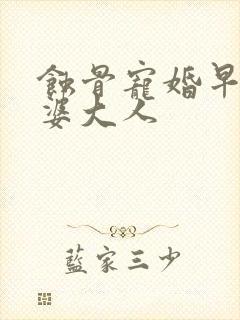 蝕骨寵婚早
婆大人
藍家三少